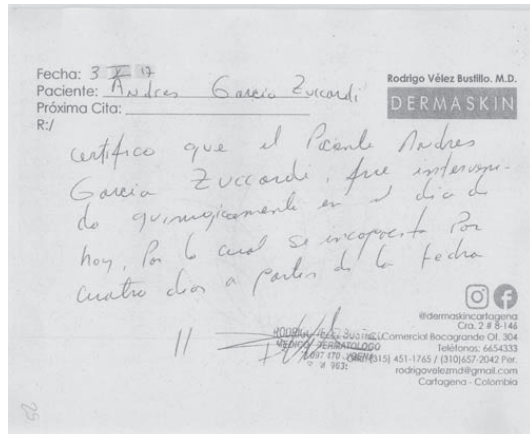 Fecha: 3 V 17
Paciente: Andres Garcia Zuccardi
Próxima Cita:
R:/
Rodrigo Vélez Bustillo. M.D.
DERMASKIN
certifico que el Paciente Andres
Garcia Zuccardi, fue interveni-
do quirurgicamente en el dia de
hoy, Por lo cual se incapacita Por
cuatro dias a partir de la fecha
@dermaskincartagena
Cra. 2 # 8-146
Comercial Bocagrande Of. 304
Teléfonos: 6654333
(315) 451-1765 / (310)657-2042 Per.
rodrigovelezmd@gmail.com
Cartagena - Colombia
RODRIGO
MEDICO DERMATOLOGO